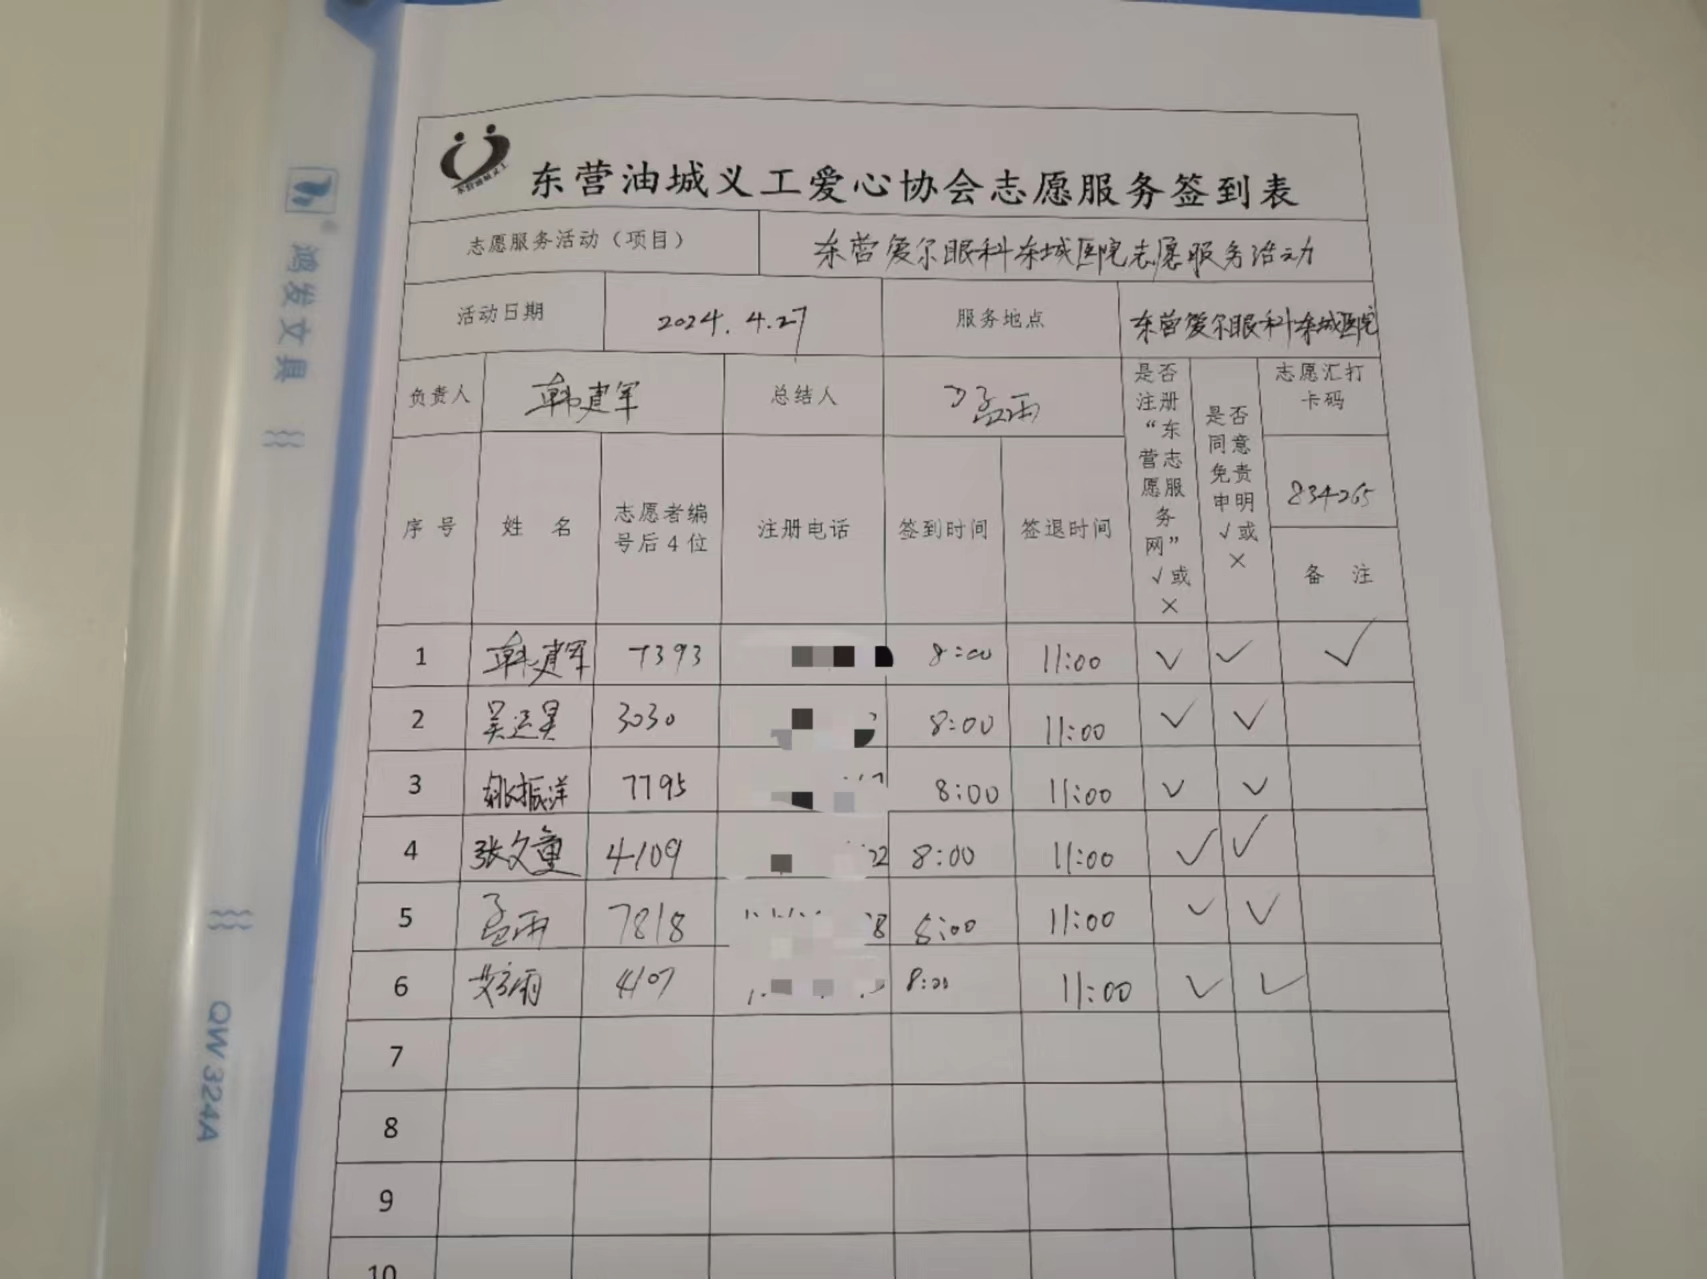 东营油城义工
东营油城义工爱心协会志愿服务签到表
志愿服务活动（项目） 东营爱尔眼科东城医院志愿服务活动
活动日期 2024.4.27 服务地点 东营爱尔眼科东城医院
负责人 韩建军 总结人 孟雨
是否注册“东营志愿服务网”√或×
是否同意免责申明√或×
志愿汇打卡码
834265
备 注
序 号 姓 名 志愿者编号后4位 注册电话 签到时间 签退时间
1 韩建军 7393 8:00 11:00 √ √ √
2 吴运昊 3030 8:00 11:00 √ √
3 姚振洋 7795 8:00 11:00 √ √
4 张文童 4109 22 8:00 11:00 √ √
5 孟雨 7818 8 8:00 11:00 √ √
6 4107 8:00 11:00 √ √
7
8
9
10
鸿发文具
QW324A